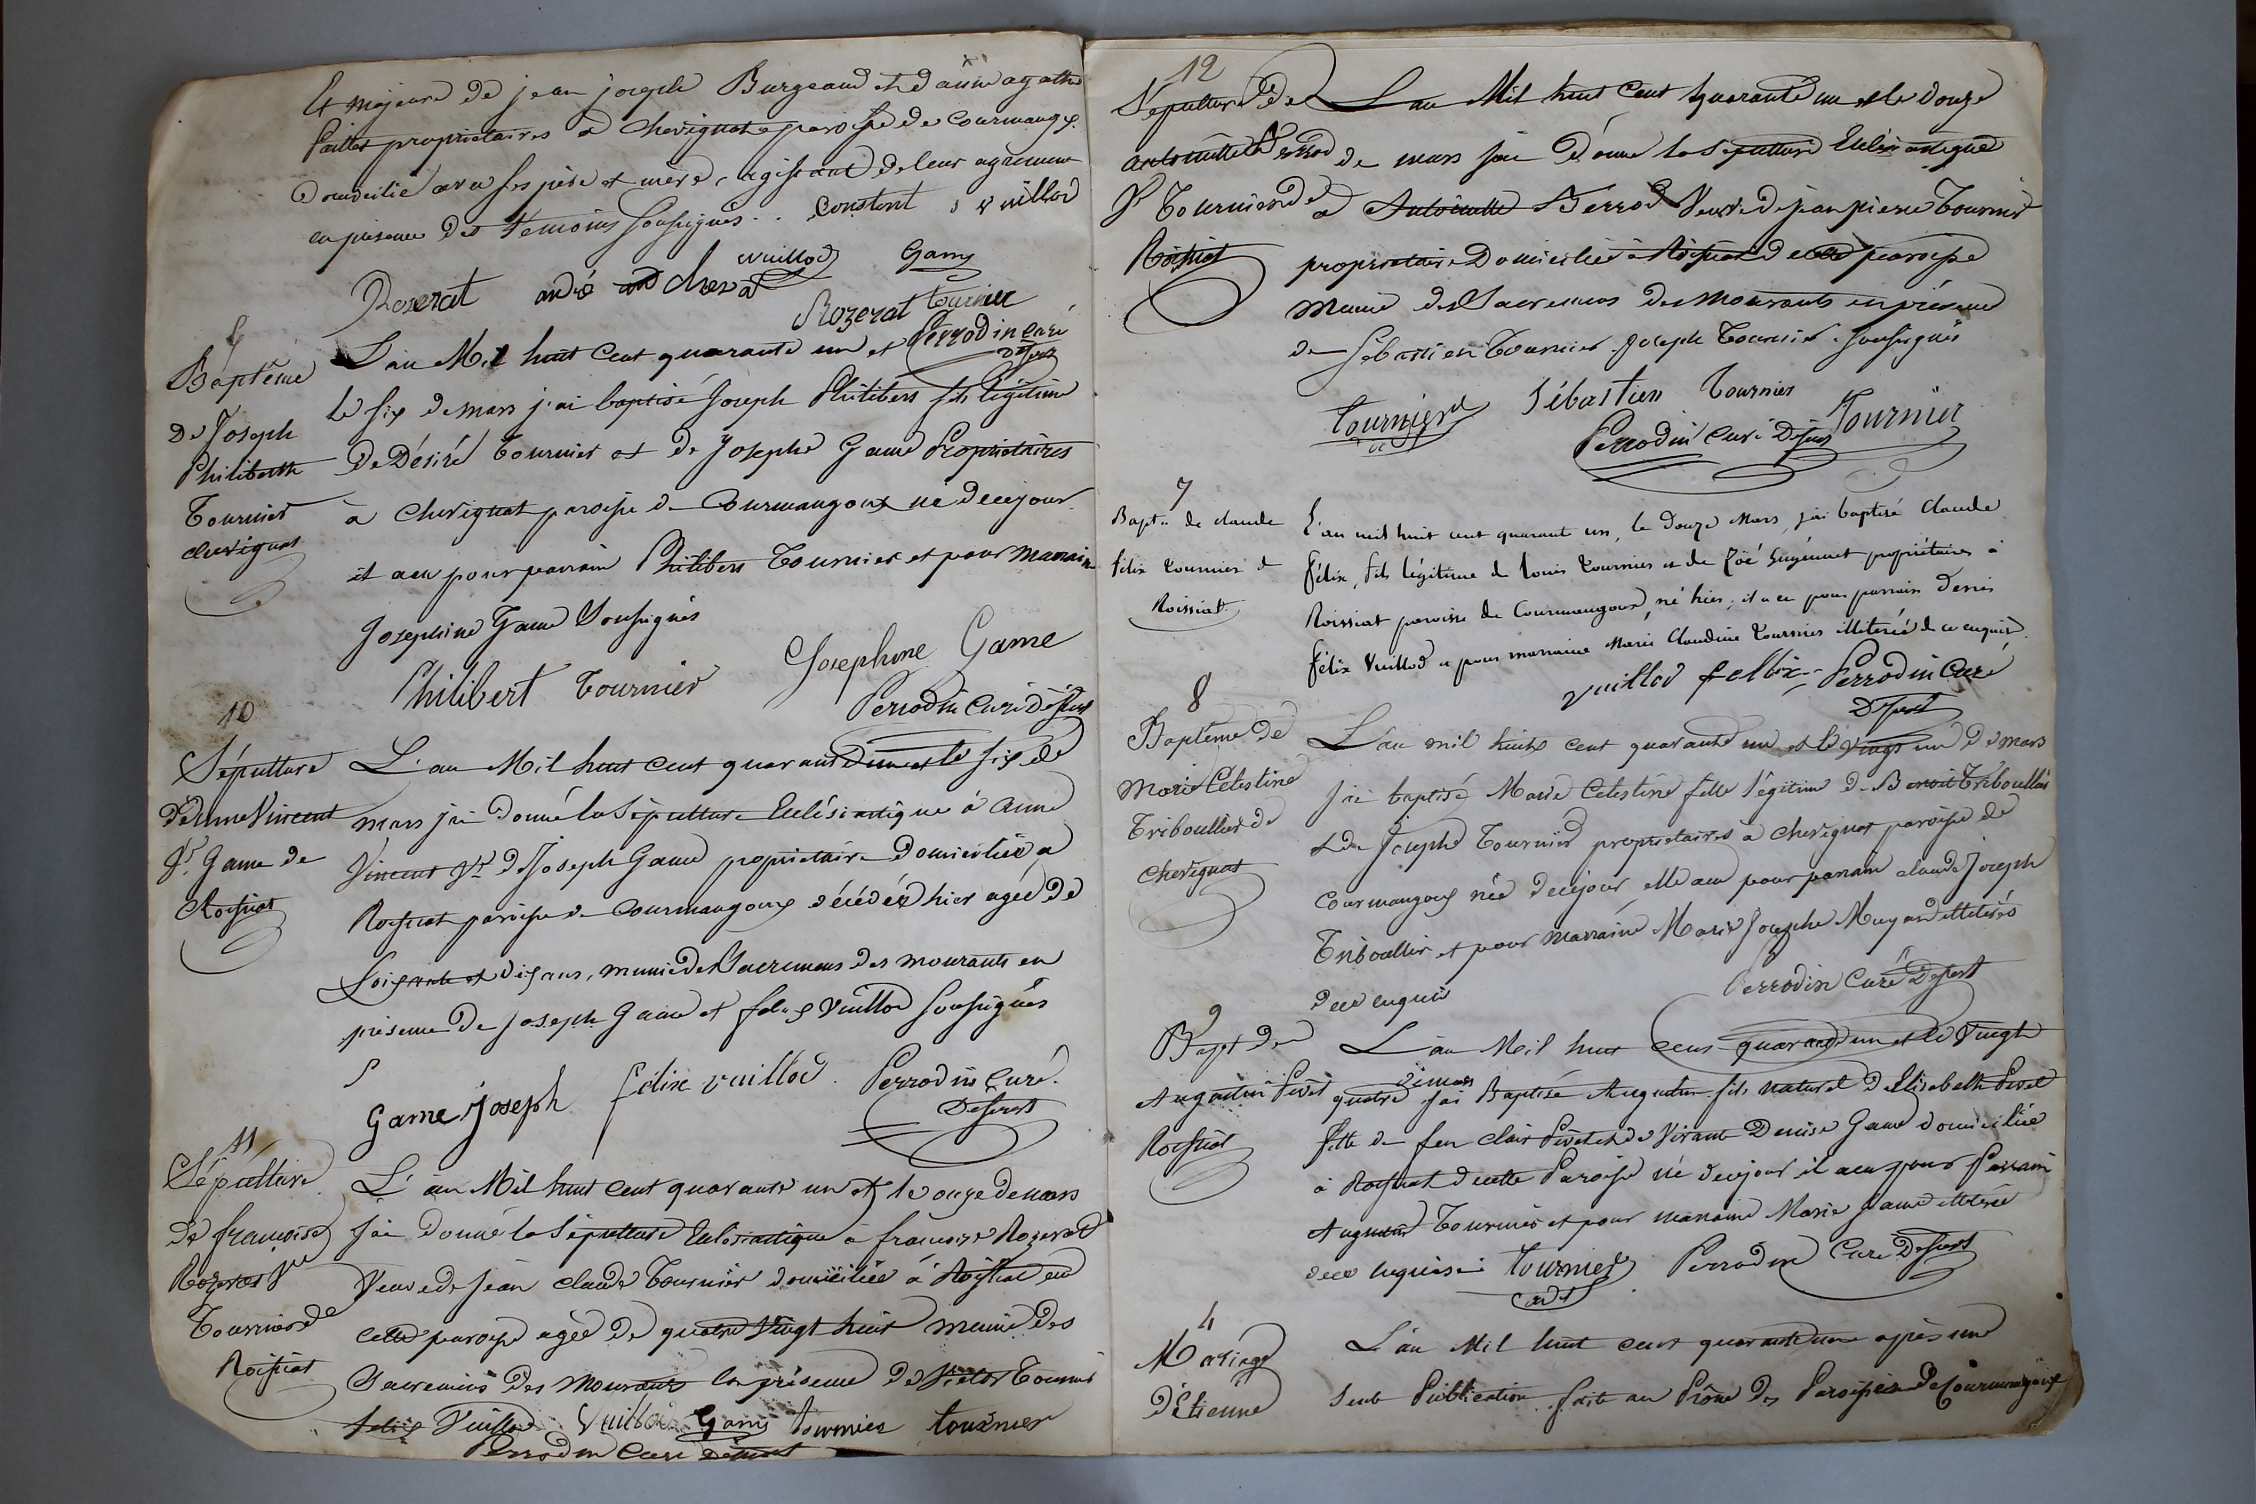 Et majeure de jean joseph Burgeaud et d'anne agathe
paillet propriétaires a Chevignat paroisse de Courmangoux
domicilié avec ses père et mère, agissant de leur agrément
en presence des temoins soussignés. Constant Vuillod
Vuillod Gamy
Rozerat andré
Rozerat tournier
Perrodin curé
Dessert
6
Baptême
de Joseph
Philiberte
Tournier
chevignat
L'an Mil huit cent quarante un et
le six de mars j'ai baptisé Joseph Philibert fils légitime
de Désiré Tournier et de Josephe Game Propriétaires
à Chevignat paroisse de Courmangoux né de ce jour
il a eu pour parrain Philibert Tournier et pour Marraine
Josephine Game Soussignés
Philibert Tournier Josephine Game
Perrodin Curé Dessert
10
Sépulture
d'Anne Vincent
Vve Game de
Roissiat
L'an Mil huit cent quarante un et le six de
mars j'ai donné la Sépulture Eclésiastique à Anne
Vincent Vve de Joseph Game propriétaire domiciliée a
Roissiat paroisse de Courmangoux décédée hier agée de
Soixante et dix ans, munie des Sacremens des mourants en
présence de Joseph Game et felix Vuillod Soussignés
Game Joseph félix vuillod Perrodin Curé
Dessert
11
Sépulture
de françoise
Rozerat Vve
Tournier de
Roissiat
L'an Mil huit cent quarante un et le onze de mars
j'ai donné la Sépulture Eclésiastique a françoise Rozerat
Veuve de Jean claude Tournier domiciliée à Roissiat en
cette paroisse agée de quatre Vingt huit munie des
Sacremens des Mourants en présence de Victor Tournier
felix Vuillod Vuillod Gamy tournier tournier
Perrodin Curé Dessert
12
Sépulture de
antoinette Perrod
Vve Tournier de
Roissiat
L'an Mil huit Cent quarante un et le douze
de mars j'ai donné la sépulture Eclésiastique
a Antoinette Perrod Veuve de jean pierre Tournier
propriétaire Domiciliée à Roissiat de cette paroisse
munie des Sacremens des Mourants en présence
de Sébastien Tournier Joseph Tournier soussignés
Tournier Sébastien Tournier
Perrodin Curé Dessert Tournier
7
Bapt. de claude
félix Tournier de
Roissiat
L'an mil huit cent quarant un, le douze Mars, j'ai baptisé Claude
félix, fils légitime de Louis Tournier et de Zoé Guyennet propriétaires à
Roissiat paroisse de Courmangoux, né hier, il a eu pour parrain Denis
félix Vuillod et pour marraine Marie Claudine Tournier illiterée de ce enquise.
vuillod fellix Perrodin Curé
Dessert
8
Baptême de
Marie Célestine
Triboullier de
Chevignat
L'an mil huit cent quarante un et le vingt un de mars
j'ai baptisé Marie Celestine fille légitime de Benoit Triboullier
et de Josephe Tournier propriétaires à Chevignat paroisse de
Courmangoux née de ce jour, elle a eu pour parrain claude Joseph
Triboullier et pour Marraine Marie Josephe Muyard illiterés
de ce enquis
Perrodin Curé Dessert
9
Bapt de
Augustin Pivet
Roissiat
L'an Mil huit cent quarante un et le Vingt
quatre de mars j'ai Baptisé Augustin fils naturel d'Elisabeth Pivet
fille de feu clair Pivet et de Vivante Denise Game domiciliée
à Roissiat de cette Paroisse né de ce jour il a eu pour Parrain
Augustin Tournier et pour marraine Marie Game illiterée
de ce enquise Tournier Perrodin Curé Dessert
4
Mariage
d'Etienne
L'an Mil huit cent quarante un après une
seule Publication faite au Prône des Paroisses de Courmangoux